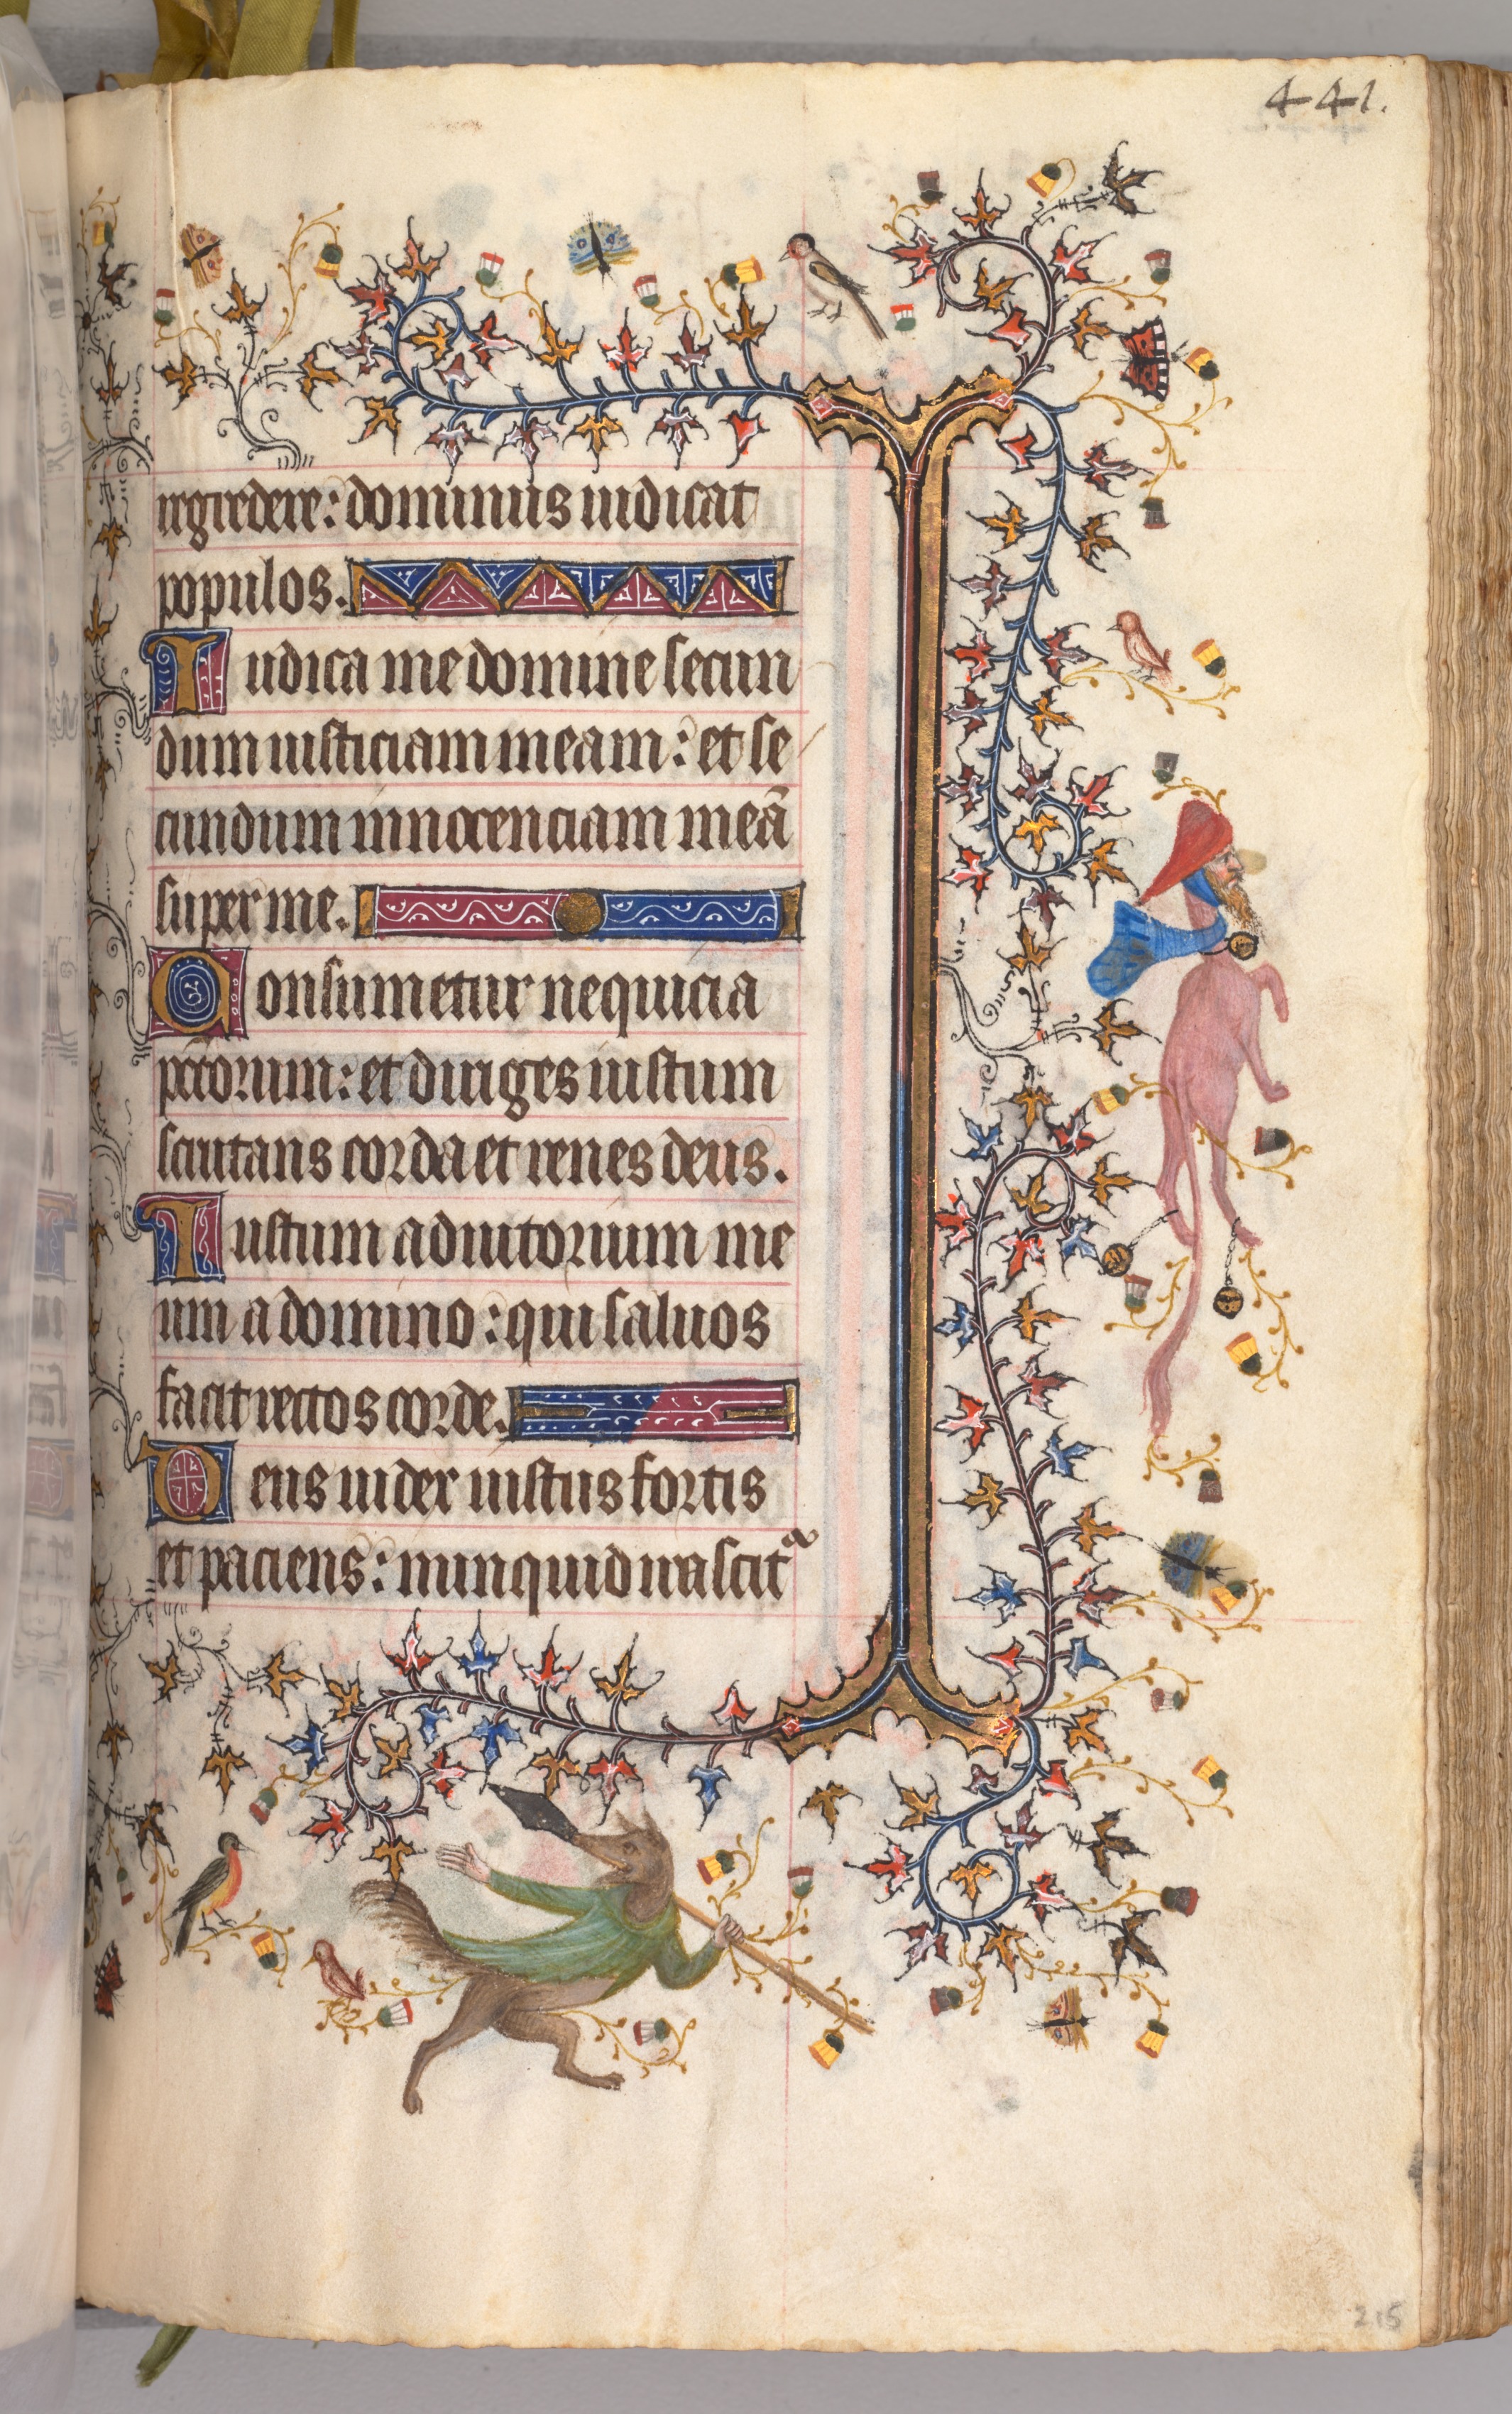 441.
regredere: dominus iudicat
populos.
Iudica me domine secun
dum iusticiam meam: et se
cundum innocenciam meā
super me.
Consumetur nequicia
pctōrum: et diriges iustum
scrutans corda et renes deus.
Iustum adiutorium me
um a domino: qui saluos
facit rectos corde.
Deus iudex iustus fortis
et paciens: nunquid irascit᷑
215